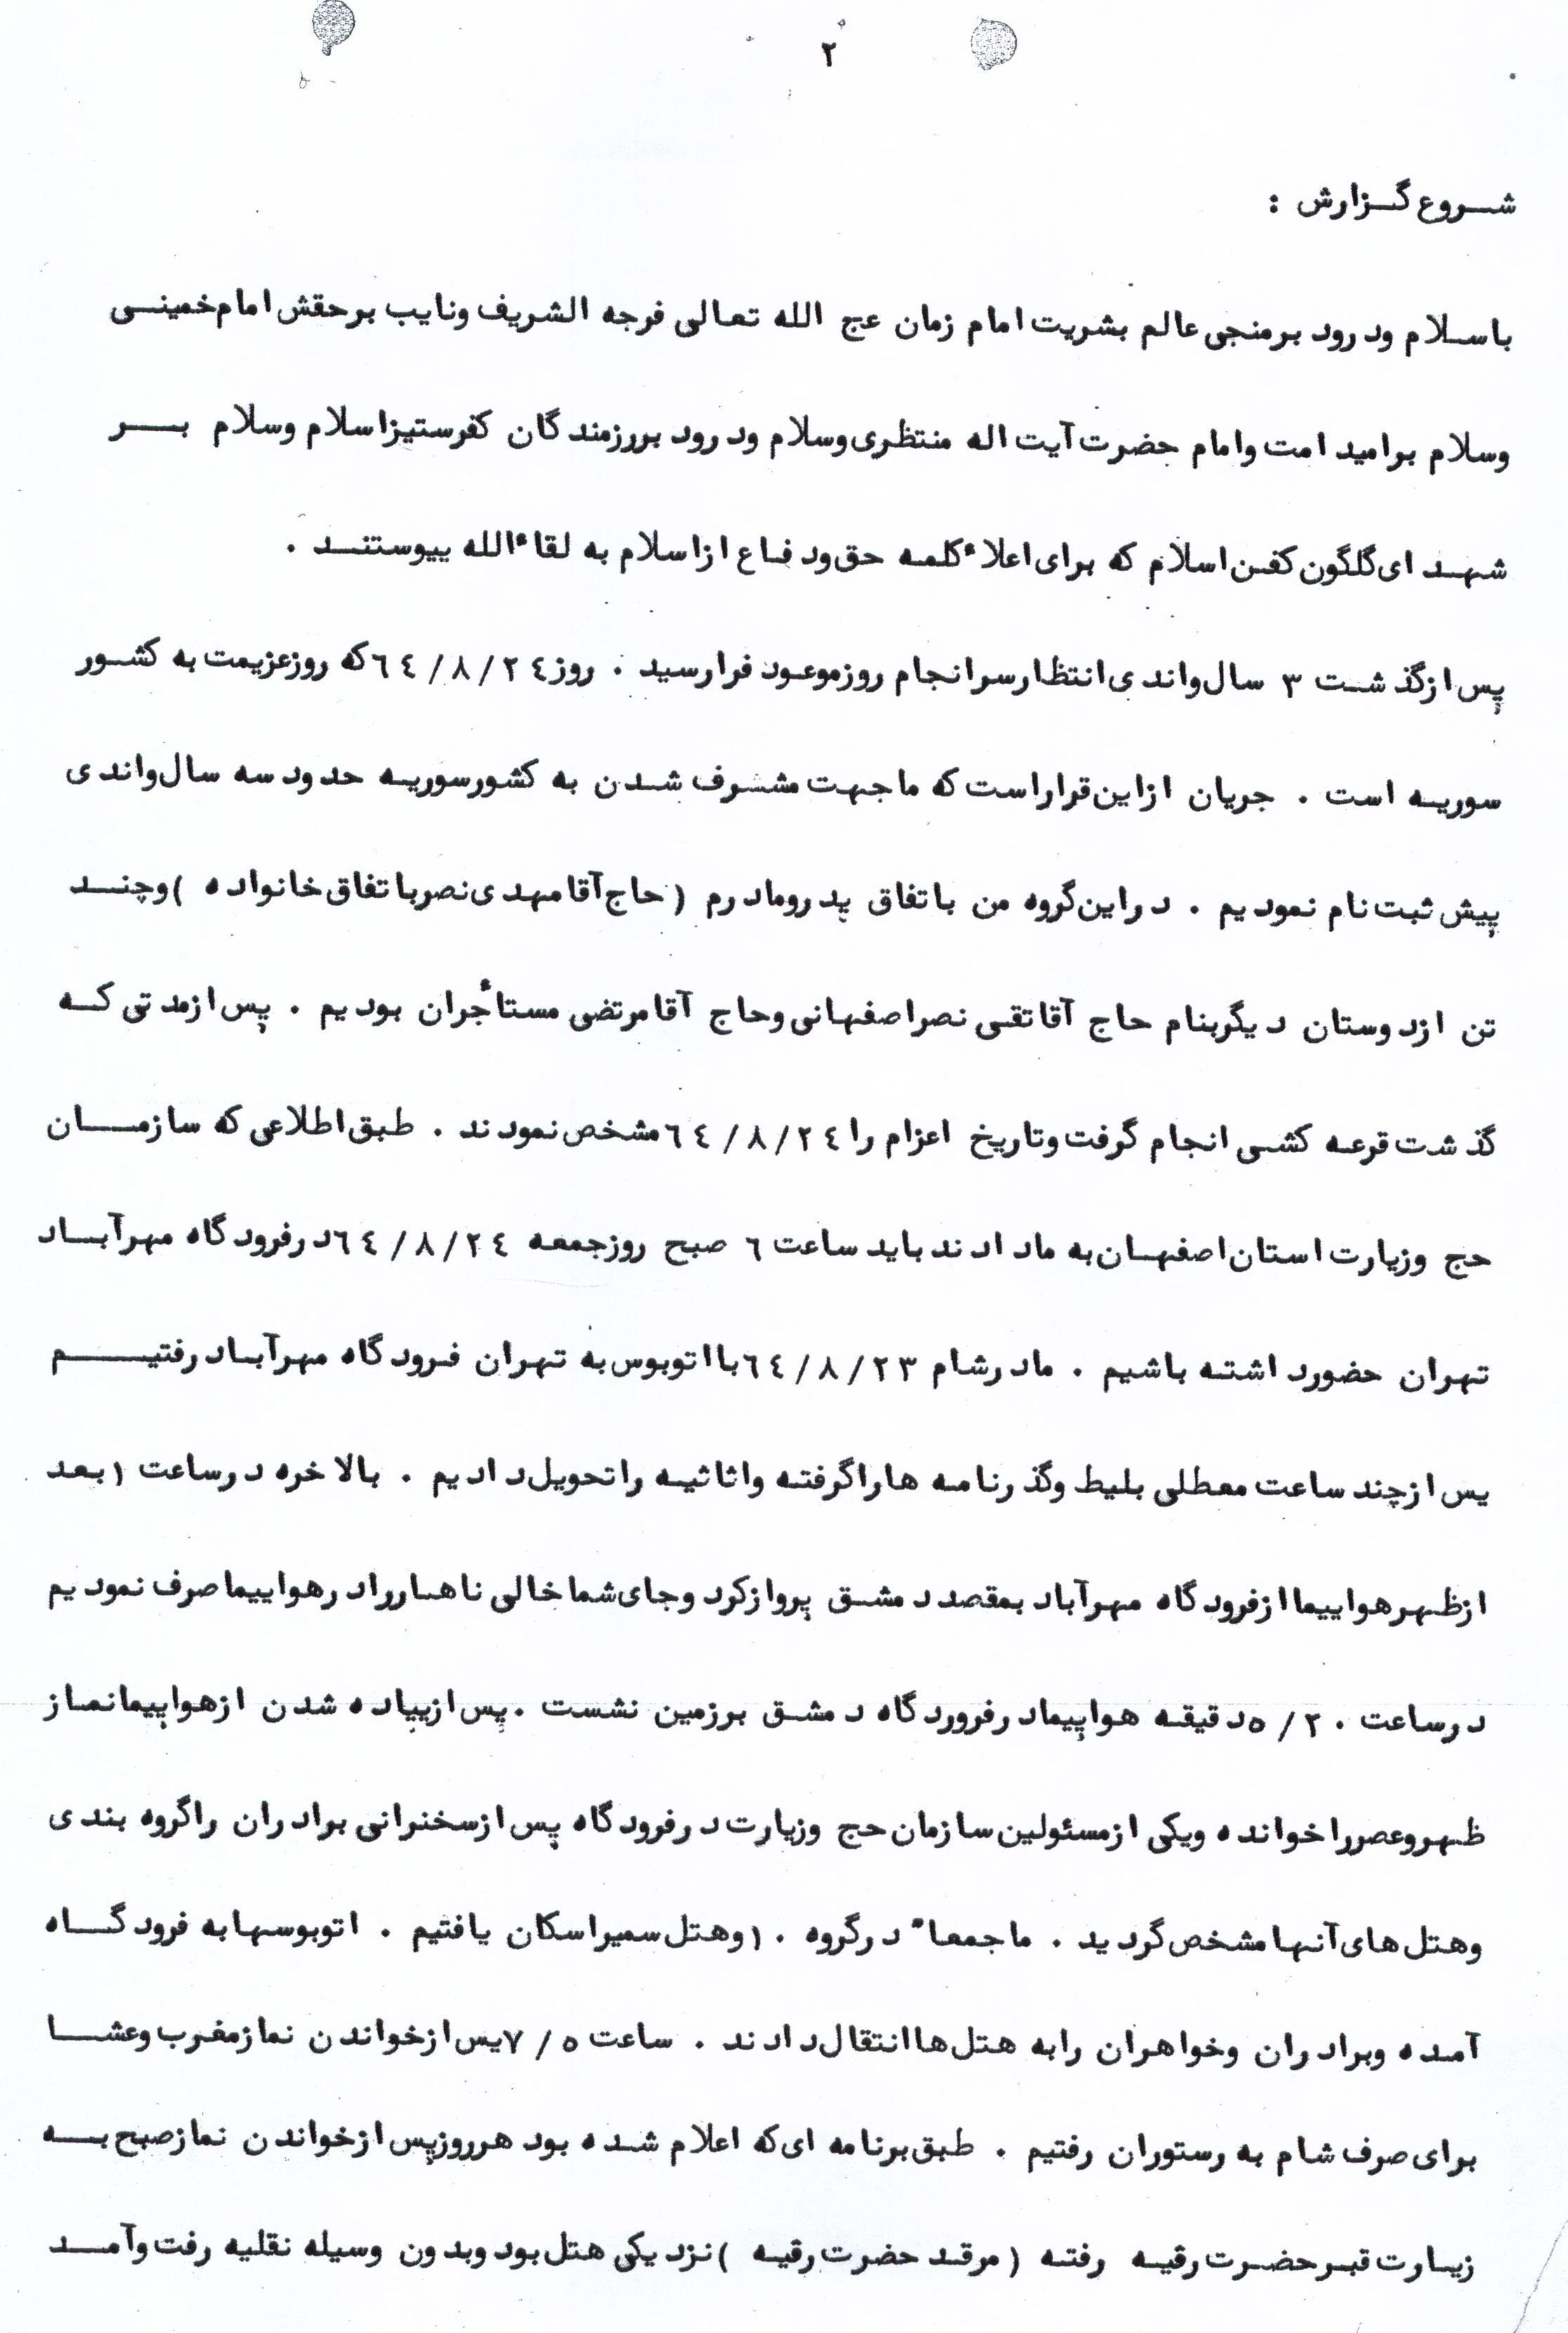 ۲
شروع گزارش :
باسلام ودرود برمنجی عالم بشریت امام زمان عج الله تعالی فرجه الشریف ونایب برحقش امام خمینی
وسلام برامید امت وامام حضرت آیت اله منتظری وسلام ودرود بررزمندگان کفرستیزاسلام وسلام بر
شهدای گلگون کفن اسلام که برای اعلاء کلمه حق ودفاع ازاسلام به لقاءالله پیوستند .
پس ازگذشت ۳ سال واندی انتظارسرانجام روزموعود فرارسید . روز۶۴/۸/۲۴که روزعزیمت به کشور
سوریه است . جریان ازاین قراراست که ماجهت مشرف شدن به کشورسوریه حدود سه سال واندی
پیش ثبت نام نمودیم . دراین گروه من باتفاق پدرومادرم (حاج آقامهدی نصرباتفاق خانواده )وچند
تن ازدوستان دیگربنام حاج آقاتقی نصراصفهانی وحاج آقامرتضی مستأجران بودیم . پس ازمدتی که
گذشت قرعه کشی انجام گرفت وتاریخ اعزام را۶۴/۸/۲۴مشخص نمودند . طبق اطلاعی که سازمان
حج وزیارت استان اصفهان به مادادند باید ساعت ۶ صبح روزجمعه ۶۴/۸/۲۴درفرودگاه مهرآباد
تهران حضورداشته باشیم . مادرشام ۶۴/۸/۲۳بااتوبوس به تهران فرودگاه مهرآباد رفتیم
پس ازچند ساعت معطلی بلیط وگذرنامه هاراگرفته واثاثیه راتحویل دادیم . بالاخره درساعت ۱بعد
ازظهرهواپیماازفرودگاه مهرآباد بمقصد دمشق پروازکرد وجای شماخالی ناهارراد رهواپیماصرف نمودیم
درساعت ۲۰/ ۵دقیقه هواپیماد رفروردگاه دمشق برزمین نشست .پس ازپیاده شدن ازهواپیمانماز
ظهروعصرراخوانده ویکی ازمسئولین سازمان حج وزیارت درفرودگاه پس ازسخنرانی برادران راگروه بندی
وهتل های آنهامشخص گردید . ماجمعاً درگروه ۱۰وهتل سمیراسکان یافتیم . اتوبوسهابه فرودگاه
آمده وبرادران وخواهران رابه هتل هاانتقال دادند . ساعت ۷/۵پس ازخواندن نمازمغرب وعشا
برای صرف شام به رستوران رفتیم . طبق برنامه ای که اعلام شده بود هرروزپس ازخواندن نمازصبح به
زیارت قبرحضرت رقیه رفته (مرقد حضرت رقیه )نزدیکی هتل بود وبدون وسیله نقلیه رفت وآمد